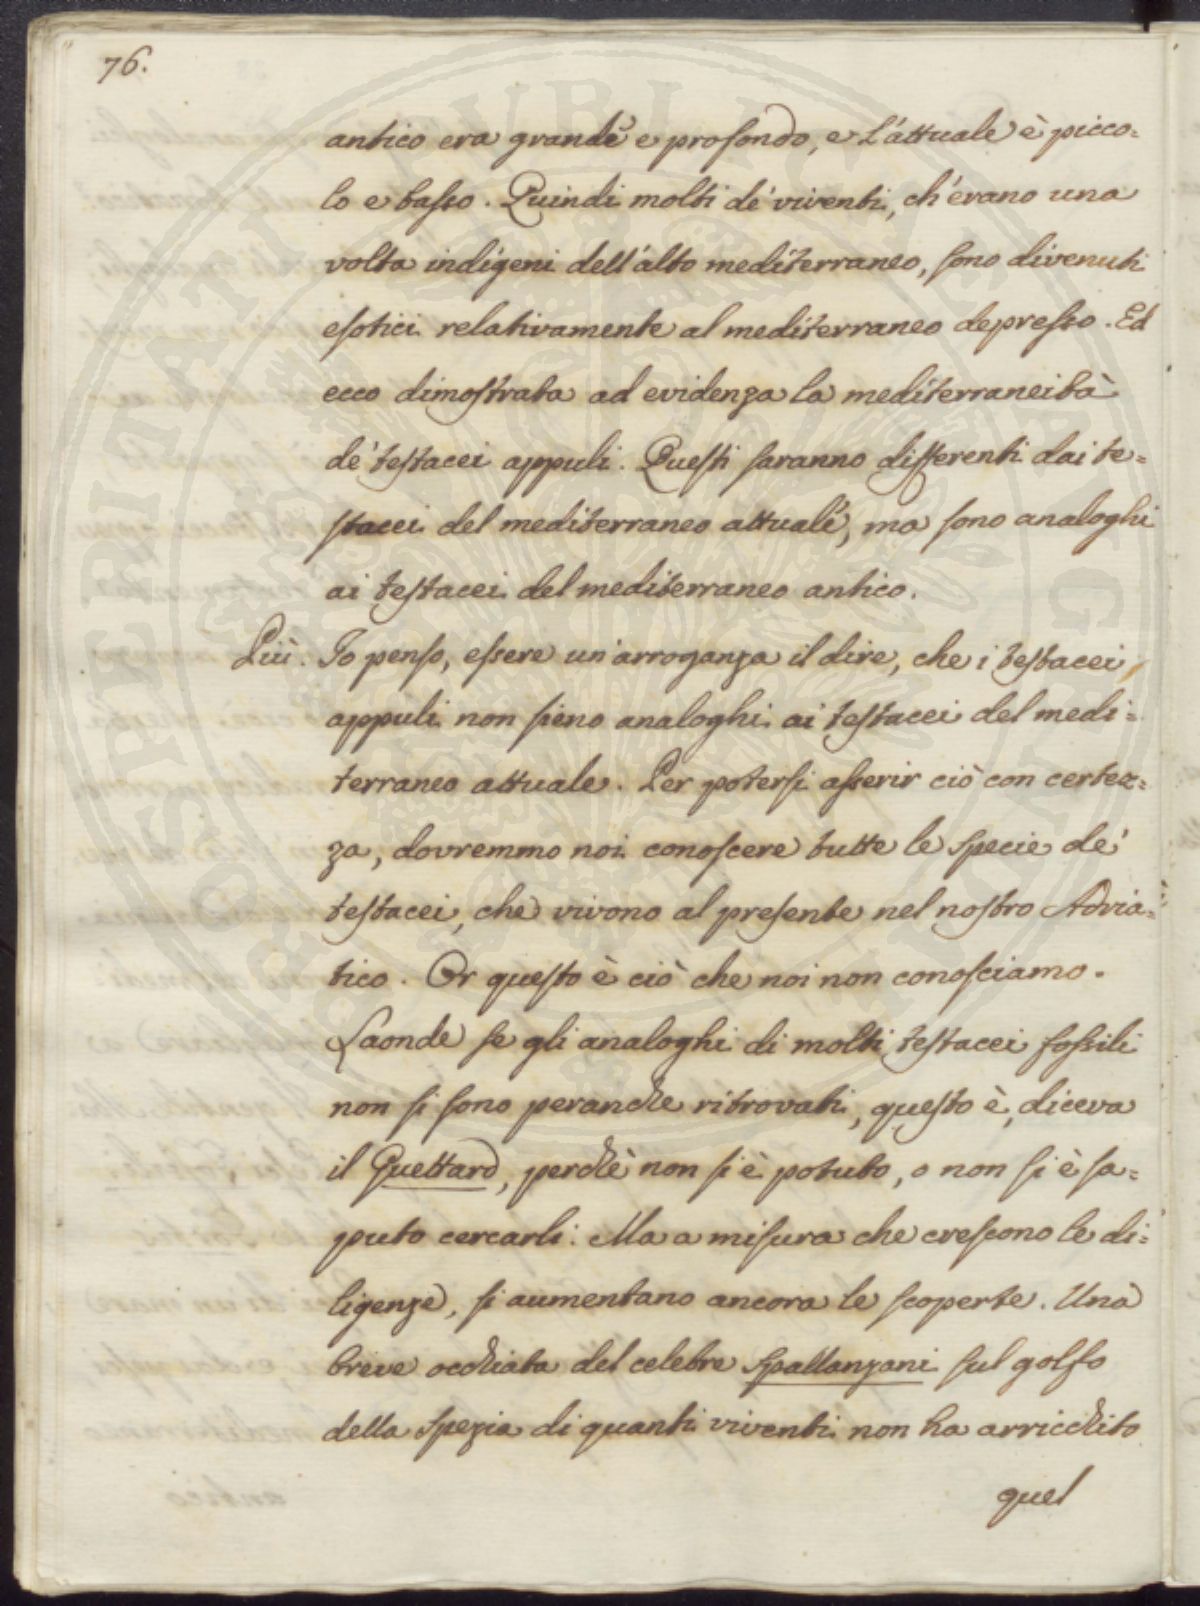 76.
antico era grande e profondo, e l'attuale è picco=
lo e basso. Quindi molti de' viventi, ch'erano una
volta indigeni dell'alto mediterraneo, sono divenuti
esotici relativamente al mediterraneo depresso. Ed
ecco dimostrata ad evidenza la mediterraneità
de' testacei appuli. Questi saranno differenti dai te=
stacei del mediterraneo attuale, ma sono analoghi
ai testacei del mediterraneo antico.
Più. Io penso, essere un'arroganza il dire, che i testacei
appuli non sieno analoghi ai testacei del medi=
terraneo attuale. Per potersi asserir ciò con certez=
za, dovremmo noi conoscere tutte le specie de'
testacei, che vivono al presente nel nostro Adria=
tico. Or questo è ciò che noi non conosciamo.
Laonde se gli analoghi di molti testacei fossili
non si sono peranche ritrovati, questo è, diceva
il Guettard, perchè non si è potuto, o non si è sa=
puto cercarli. Ma a misura che crescono le di=
ligenze, si aumentano ancora le scoperte. Una
breve occhiata del celebre Spallanzani sul golfo
della Spezia di quanti viventi non ha arricchito
quel
PROSPERITATI PUBLICAE AUGENDAE